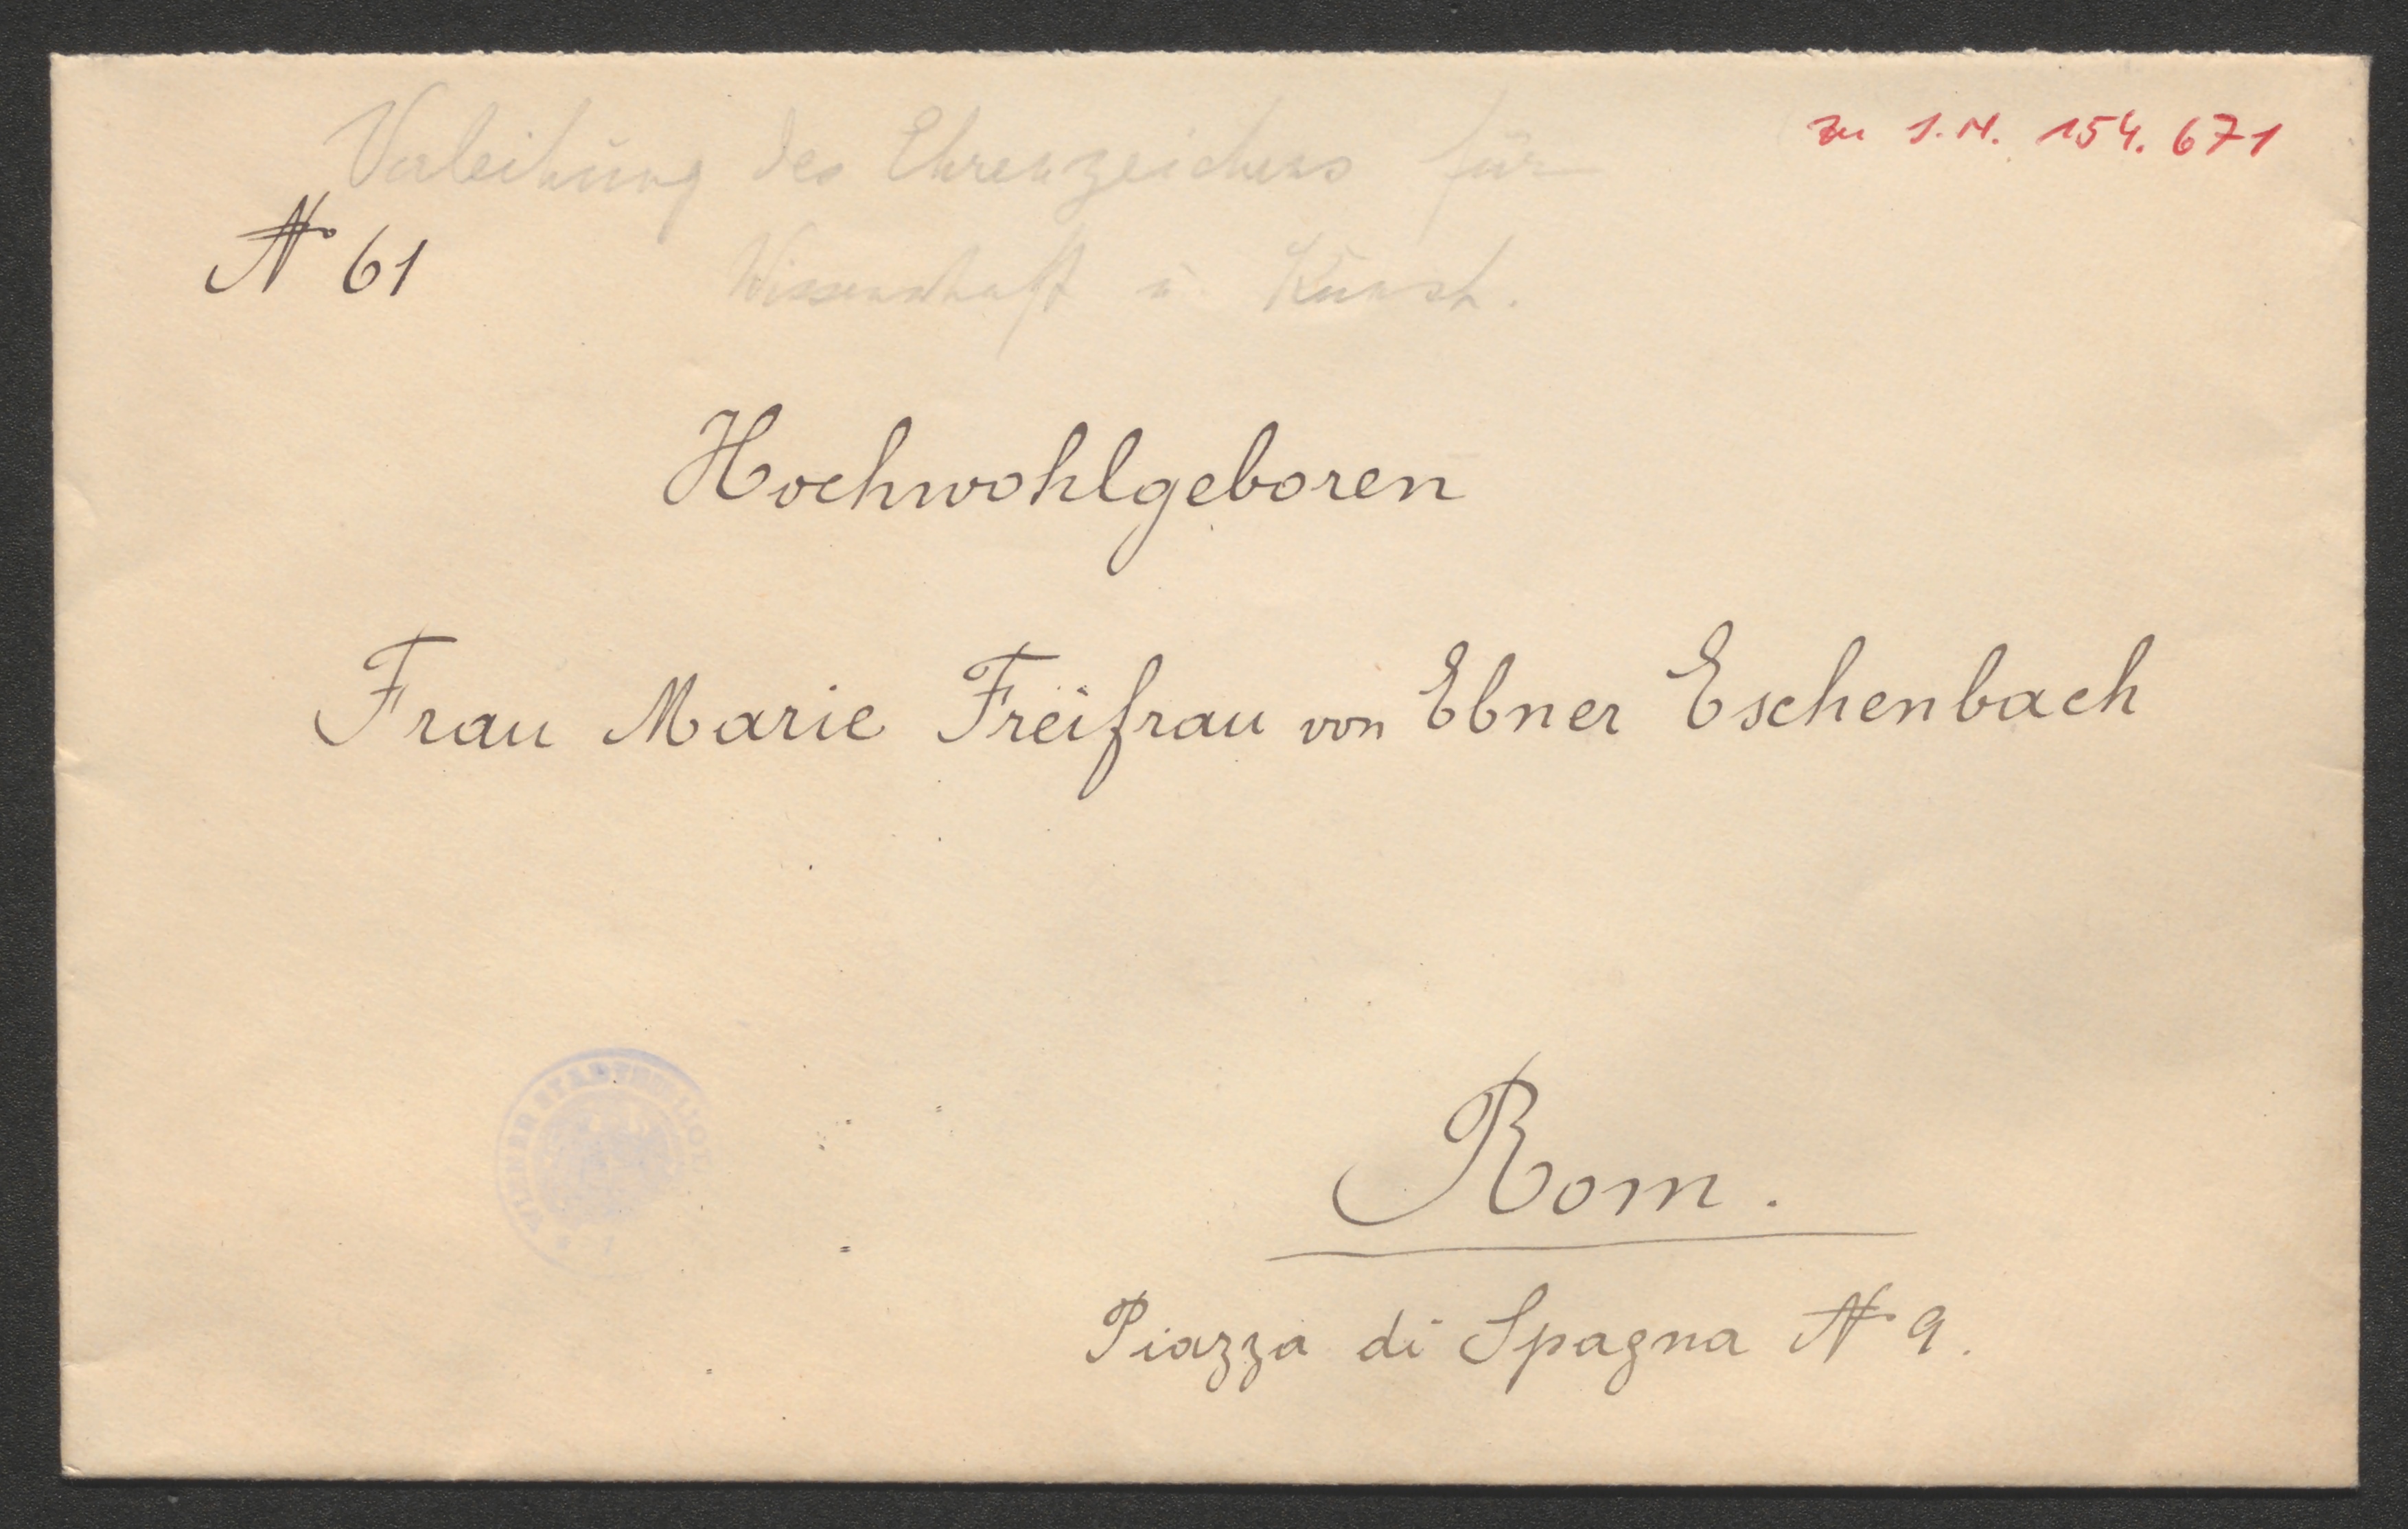 zu I.N. 154.671
Verleihung des Ehrenzeichens für
Wissenschaft u. Kunst.
No 61
Hochwohlgeboren
Frau Marie Freifrau von Ebner Eschenbach
WIENER STADT
Rom.
Piazza di Spagna No 9.